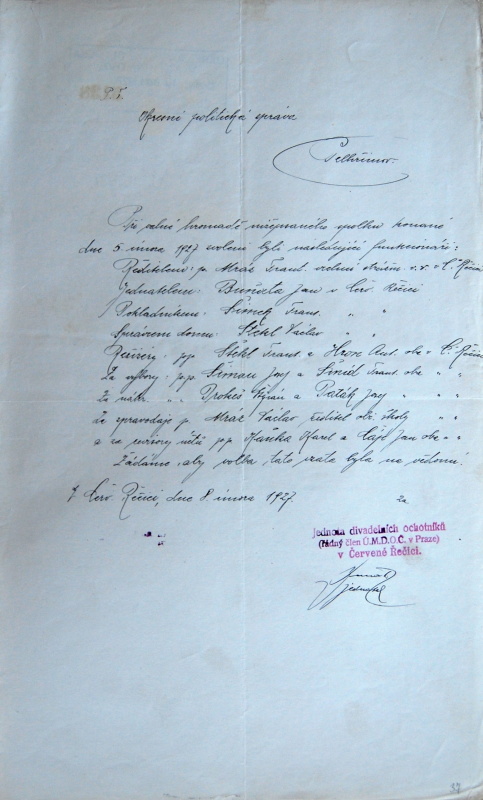 P.T.
Okresní politická správa
Pelhřimov.
Při valné hromadě nížepsaného spolku konané
dne 5. února 1927 zvoleni byli následující funkcionáři:
Ředitelem: p. Mráz Frant. v. v. v Č. Řečici
Jednatelem: Jan v Červ. Řečici
Pokladníkem: Šimek Frant. " "
Správcem domu: Štěkl Václav " "
Režiséry: pp. Štěkl Frant. a Hron Ant. oba v Č. Řečici
Za výbory: pp. Šimau Jos. a Šmíd Frant. oba " "
Za náhr. " " Prokeš a Paták Jos. " "
Za zpravodaje p. Mráz Václav, ředitel ob. školy " "
a za revisory účtů pp. Maňka Karel a Jan oba " "
Žádáme, aby volba tato vzata byla na vědomí.
V Červ. Řečici, dne 8. února 1927.
za
Jednota divadelních ochotníků
(řádný člen Ú.M.D.O.Č. v Praze)
v Červené Řečici.
jednatel
37